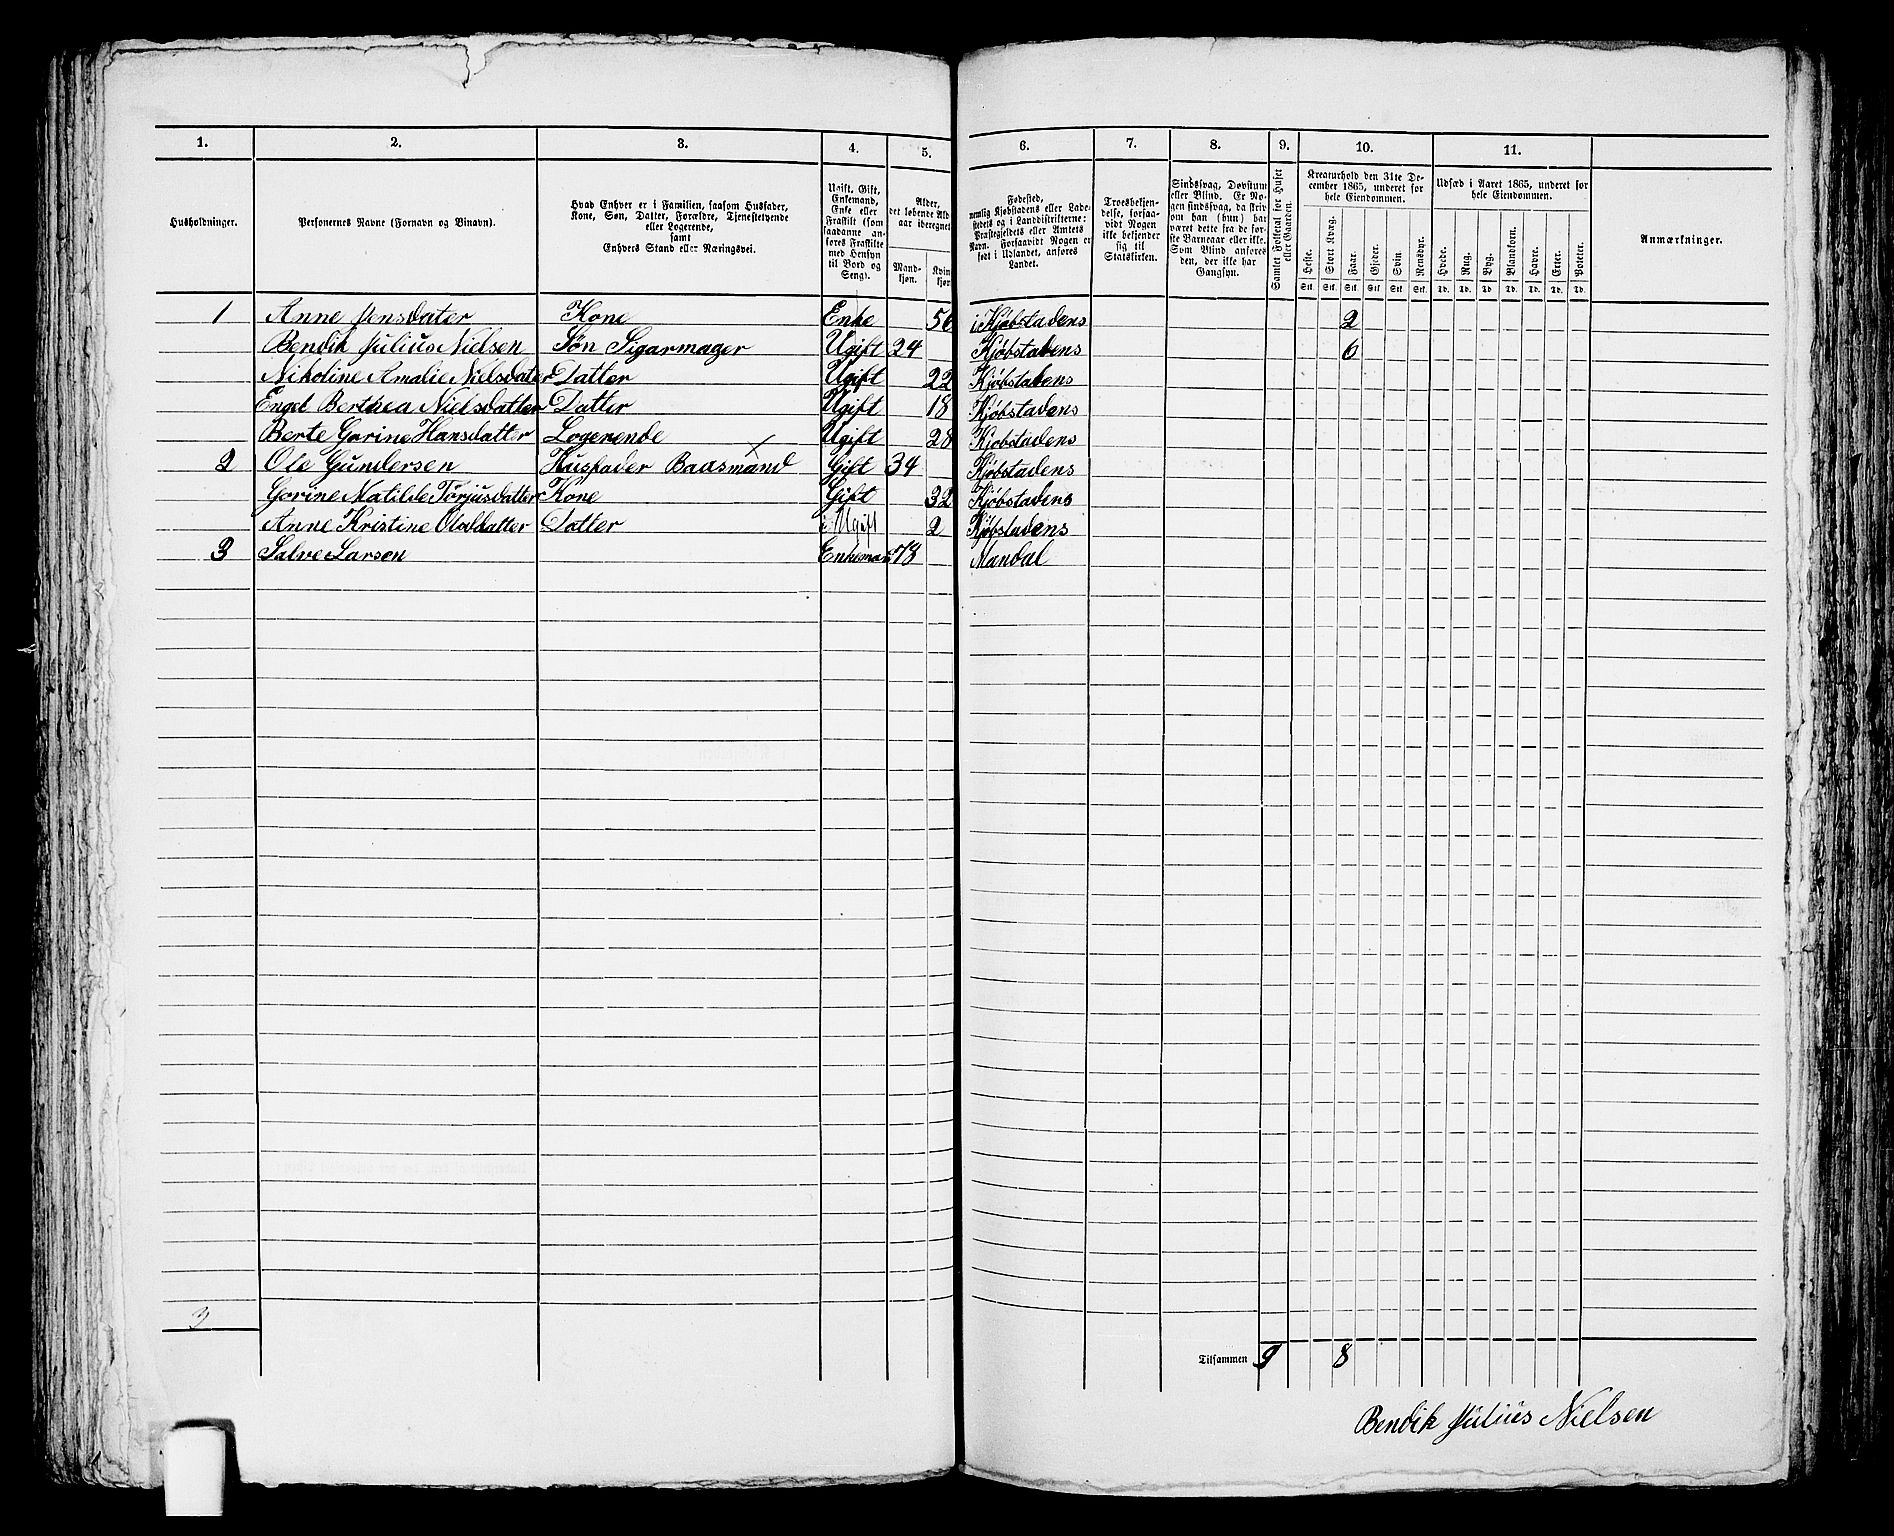 1. 2. 3. 4. 5. 6. 7. 8. 9. 10. 11.
Husholdninger.
Personernes Navne (Fornavn og Binavn).
Hvad Enhver er i Familien, saasom Husfader,
Kone, Søn, Datter, Forældre, Tjenestetyende
eller Logerende,
samt
Enhvers Stand eller Næringsvei.
Ugift, Gift,
Enkemand,
Enke eller
Fraskilt (som
saadanne an-
føres Fraskilte
med Hensyn
til Bord og
Seng).
Alder,
det løbende Ald
aar iberegnet
Mand-
kjøn.
Kvin
kjøn
Fødested,
nemlig Kjøbstadens eller Lade-
stedets og i Landdistrikterne:
Præstegjeldets eller Amtets
Navn. Forsaavidt Nogen er
født i Udlandet, anføres
Landet.
Troesbekjen-
delse, forsaa-
vidt Nogen
ikke bekjender
sig til
Statskirken.
Sindssvag, Døvstum
eller Blind. Er No-
gen sindssvag, da skriv
om han (hun) har
været dette fra de før-
ste Barneaar eller ikke.
Som Blind anføres
den, der ikke har
Gangsyn.
Samlet Folketal for Huset
eller Gaarden.
Kreaturhold den 31te De-
cember 1865, underet for
hele Eiendommen.
Heste. Stort Kvæg. Faar. Gjeder. Svin. Rensdyr.
Stk. Stk. Stk. Stk. Stk. Stk.
Udsæd i Aaret 1865, underet for
hele Eiendommen.
Hvede. Rug. Byg. Blandkorn. Havre. Erter. Poteter.
Td. Td. Td. Td. Td. Td. Td.
Anmærkninger.
1 Anne Jensdater Kone Enke 56 i Kjøbstadens 2
Bendik Julius Nielsen Søn Sigarmager Ugift 24 Kjøbstadens 6
Nikoline Amalie Nielsdater Datter Ugift 22 Kjøbstadens
Engel Berthea Nielsdatter Datter Ugift 18 Kjøbstadens
Berte Gorine Hansdatter Logerende Ugift 28 Kjøbstadens
2 Ole Gundersen Husfader Baasmand Gift 34 Kjøbstadens
Gorine Matilde Torjusdatter Kone Gift 32 Kjøbstadens
Anne Kristine Olsdatter Datter Ugift 2 Kjøbstadens
3 Salve Larsen Enkeman 78 Mandal
3
Tilsammen 9 8
Bendik Julius Nielsen